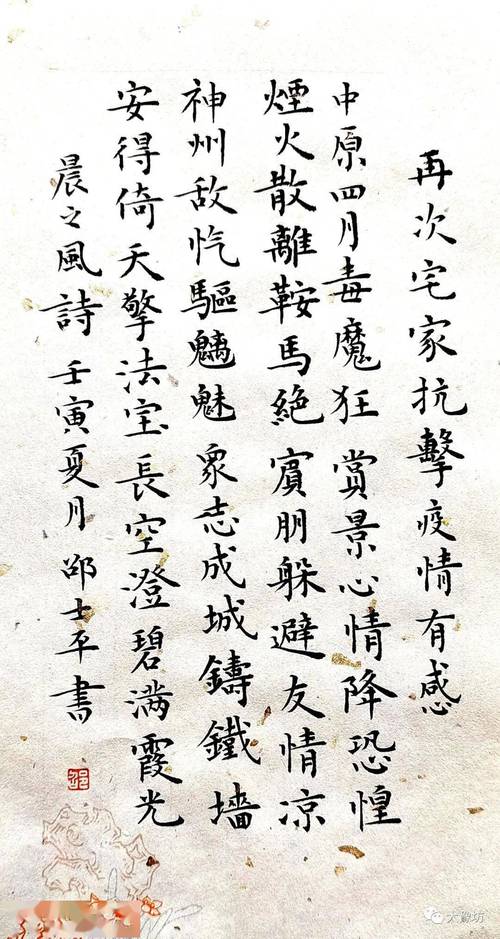 再次宅家抗擊疫情有感
中原四月毒魔狂賞景心情降恐惶
煙火散離鞍馬絕賓朋躲避友情凉
神州敌忾驅魑魅衆志成城鑄鐵墻
安得倚天擎法宝長空澄碧满霞光
晨之風詩壬寅夏月邵士平書
大豫坊